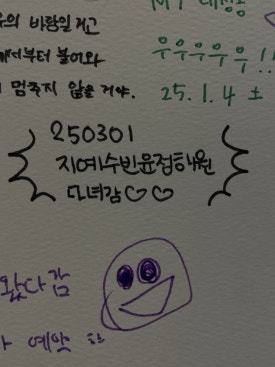 의 바람일 거고
에서부터 불어와
멈추지 않을 거야.
우우우우우!!
25.1.4 土
250301
지예수빈윤점해원
다녀감♡♡
왔다감